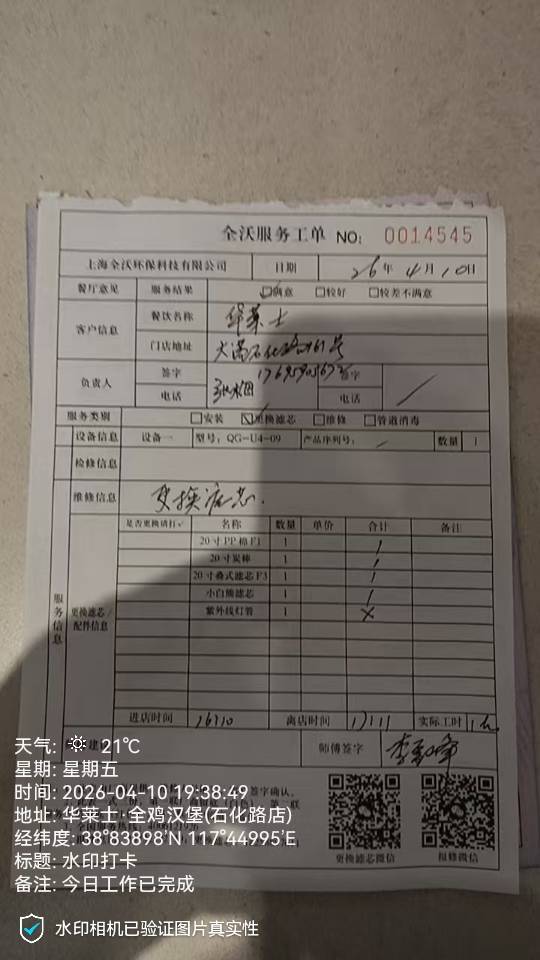 全沃服务工单 NO: 0014545
上海全沃环保科技有限公司 日期 26年4月10日
餐厅意见 服务结果 ☑满意 □较好 □较差不满意
客户信息 餐饮名称 华莱士
门店地址 大港石化路461号
负责人 签字 签字
电话 电话
服务类别 □安装 ☒更换滤芯 □维修 □管道消毒
设备信息 设备一 型号: QG-U4-09 产品序列号: 数量 1
检修信息
维修信息 更换滤芯.
服务信息
更换滤芯/配件信息
是否更换请打√ 名称 数量 单价 合计 备注
20寸PP棉F1 1 1
20寸炭棒 1 1
20寸叠式滤芯F3 1 1
小白熊滤芯 1 1
紫外线灯管 1 X
进店时间 16:10 离店时间 17:11 实际工时 1h
师傅签字
签字确认。
更换滤芯微信 报修微信
天气: 21℃
星期: 星期五
时间: 2026-04-10 19:38:49
地址: 华莱士·全鸡汉堡(石化路店)
经纬度: 38°83898'N 117°44995'E
标题: 水印打卡
备注: 今日工作已完成
水印相机已验证图片真实性